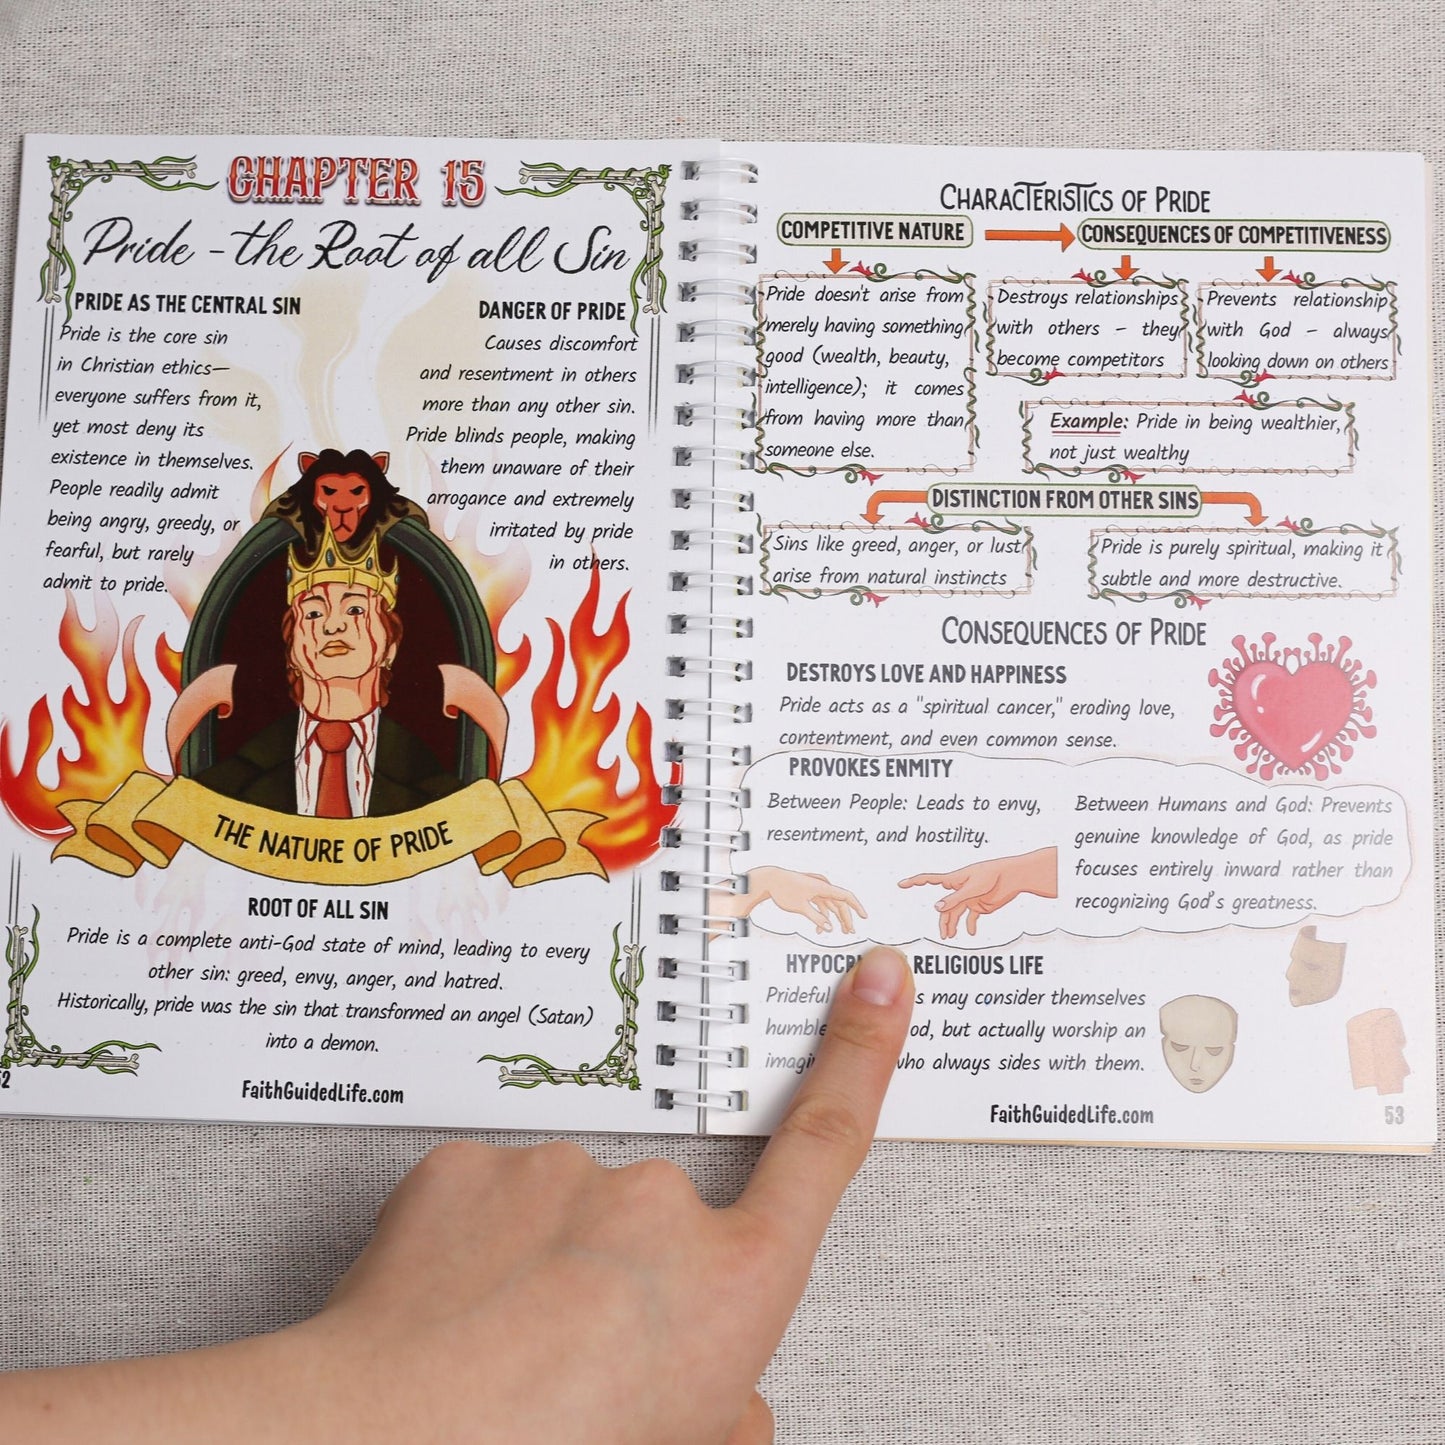 CHAPTER 15
Pride - the Root of all Sin
PRIDE AS THE CENTRAL SIN
Pride is the core sin
in Christian ethics—
everyone suffers from it,
yet most deny its
existence in themselves.
People readily admit
being angry, greedy, or
fearful, but rarely
admit to pride.
DANGER OF PRIDE
Causes discomfort
and resentment in others
more than any other sin.
Pride blinds people, making
them unaware of their
arrogance and extremely
irritated by pride
in others.
THE NATURE OF PRIDE
ROOT OF ALL SIN
Pride is a complete anti-God state of mind, leading to every
other sin: greed, envy, anger, and hatred.
Historically, pride was the sin that transformed an angel (Satan)
into a demon.
FaithGuidedLife.com
CHARACTERISTICS OF PRIDE
COMPETITIVE NATURE
CONSEQUENCES OF COMPETITIVENESS
Pride doesn't arise from
merely having something
good (wealth, beauty,
intelligence); it comes
from having more than
someone else.
Destroys relationships
with others – they
become competitors
Prevents relationship
with God – always
looking down on others
Example: Pride in being wealthier,
not just wealthy
DISTINCTION FROM OTHER SINS
Sins like greed, anger, or lust
arise from natural instincts
Pride is purely spiritual, making it
subtle and more destructive.
CONSEQUENCES OF PRIDE
DESTROYS LOVE AND HAPPINESS
Pride acts as a "spiritual cancer," eroding love,
contentment, and even common sense.
PROVOKES ENMITY
Between People: Leads to envy,
resentment, and hostility.
Between Humans and God: Prevents
genuine knowledge of God, as pride
focuses entirely inward rather than
recognizing God's greatness.
RELIGIOUS LIFE
Prideful may consider themselves
humble but actually worship an
who always sides with them.
FaithGuidedLife.com
53